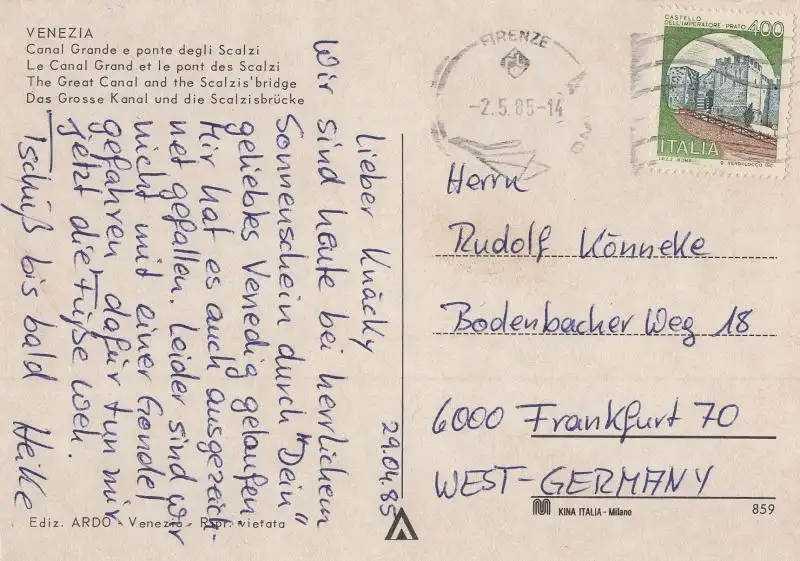 VENEZIA
Canal Grande e ponte degli Scalzi
Le Canal Grand et le pont des Scalzi
The Great Canal and the Scalzis'bridge
Das Grosse Kanal und die Scalzisbrücke
29.04.85
Lieber Knäcky
Wir sind heute bei herrlichem
Sonnenschein durch "Dein"
geliebtes Venedig gelaufen
Mir hat es auch ausgezeich-
net gefallen. Leider sind wir
nicht mit einer Gondel
gefahren dafür tun mir
jetzt die Füße weh.
Tschüß bis bald Heike
Ediz. ARDO - Venezia - Ripr. vietata
FIRENZE
-2.5.85-14
CASTELLO
DELL'IMPERATORE - PRATO
400
ITALIA
Herrn
Rudolf Könneke
Bodenbacher Weg 18
6000 Frankfurt 70
WEST-GERMANY
KINA ITALIA - Milano
859